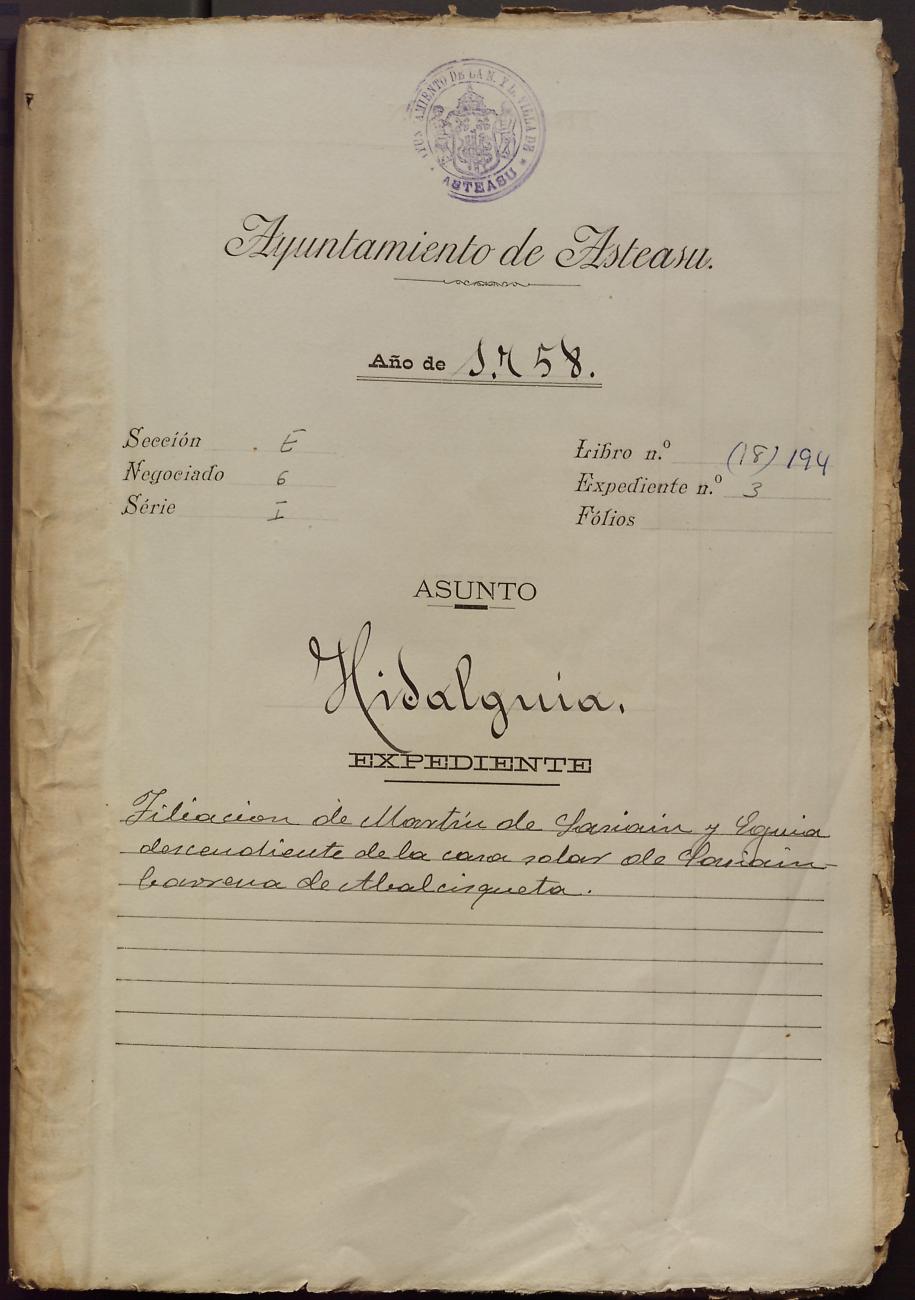 AYUNTAMIENTO DE LA N. Y L. VILLA DE
* ASTEASU *
Ayuntamiento de Asteasu.
Año de 1.758.
Sección E
Negociado 6
Série I
Libro n.º (18) 194
Expediente n.º 3
Fólios
ASUNTO
Hidalguia.
EXPEDIENTE
Filiacion de Martín de Sasiain y Eguia
descendiente de la casa solar de Sasiain-
barrena de Abalcisqueta.